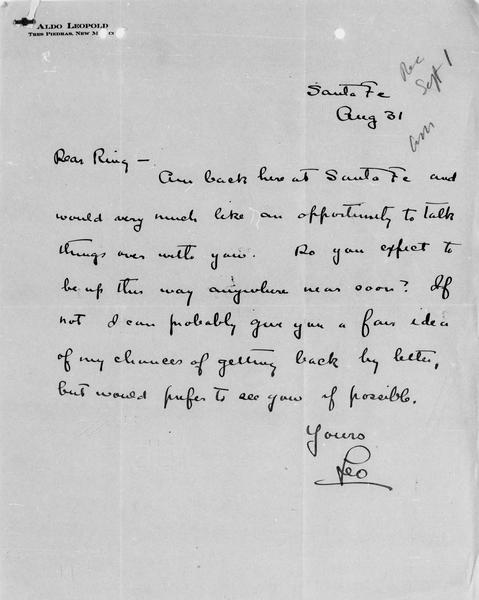 ALDO LEOPOLD
TRES PIEDRAS, NEW M
Rec
Sept 1
Santa Fe
Aug 31
Dear Ring —
Am back here at Santa Fe and
would very much like an opportunity to talk
things over with you. Do you expect to
be up this way anywhere near soon? If
not I can probably give you a fair idea
of my chances of getting back by letter,
but would prefer to see you if possible.
Yours
Leo